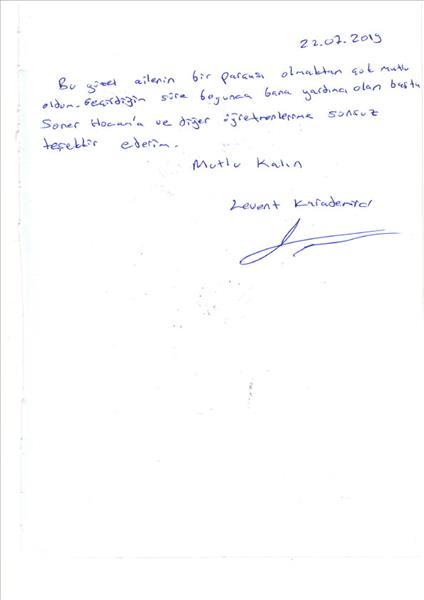 22.07.2019
Bu güzel ailenin bir parçası olmaktan çok mutlu
oldum. Geçirdiğim süre boyunca bana yardımcı olan başta
Soner Hocam'a ve diğer öğretmenlerime sonsuz
teşekkür ederim.
Mutlu Kalın
Levent